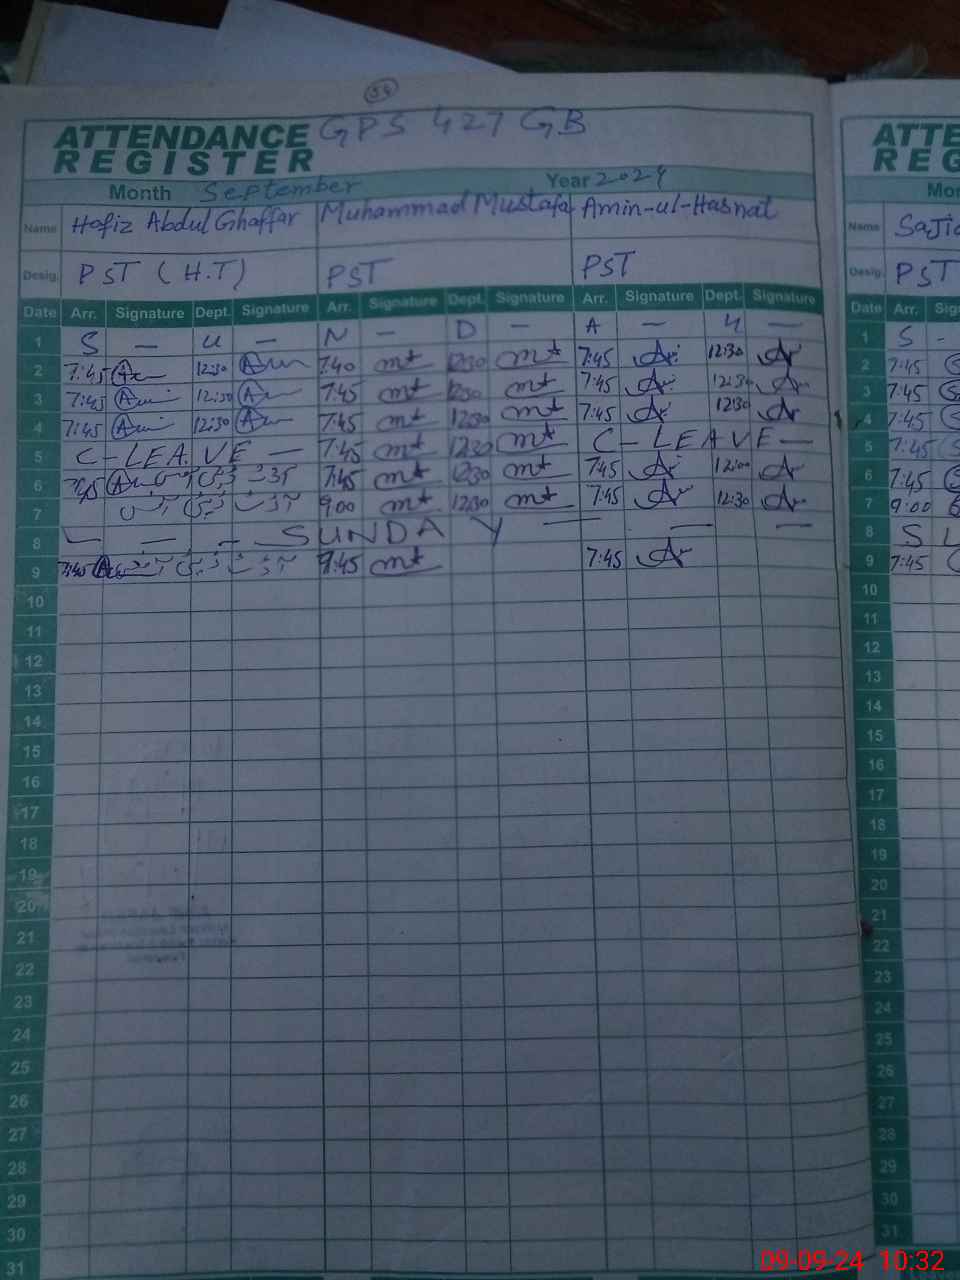 36
ATTENDANCE GPS 427 GB
REGISTER
Month September Year 2024
Name Hafiz Abdul Ghaffar Muhammad Mustafa Amin-ul-Hasnat
Desig. PST (H.T) PST PST
Date Arr. Signature Dept. Signature Arr. Signature Dept. Signature Arr. Signature Dept. Signature
1 S — U — N — D — A — Y —
2 7:45 12:30 7:40 mt 12:30 mt 7:45 12:30
3 7:45 12:30 7:45 mt 12:30 mt 7:45 12:30
4 7:45 12:30 7:45 mt 12:30 mt 7:45 12:30
5 C-LEAVE — 7:45 mt 12:30 mt C-LEAVE —
6 7:45 7:45 mt 12:30 mt 7:45 12:00
7 9:00 mt 12:30 mt 7:45 12:30
8 — — - SUNDAY — — —
9 7:45 7:45 mt 7:45
10
11
12
13
14
15
16
17
18
19
20
21
22
23
24
25
26
27
28
29
30
31
ATTE
REG
Mon
Name Sajid
Desig. PST
Date Arr. Sig
1 S -
2 7:45
3 7:45
4 7:45
5 7:45
6 7:45
7 9:00
8 S U
9 7:45
10
11
12
13
14
15
16
17
18
19
20
21
22
23
24
25
26
27
28
29
30
31
09-09-24 10:32